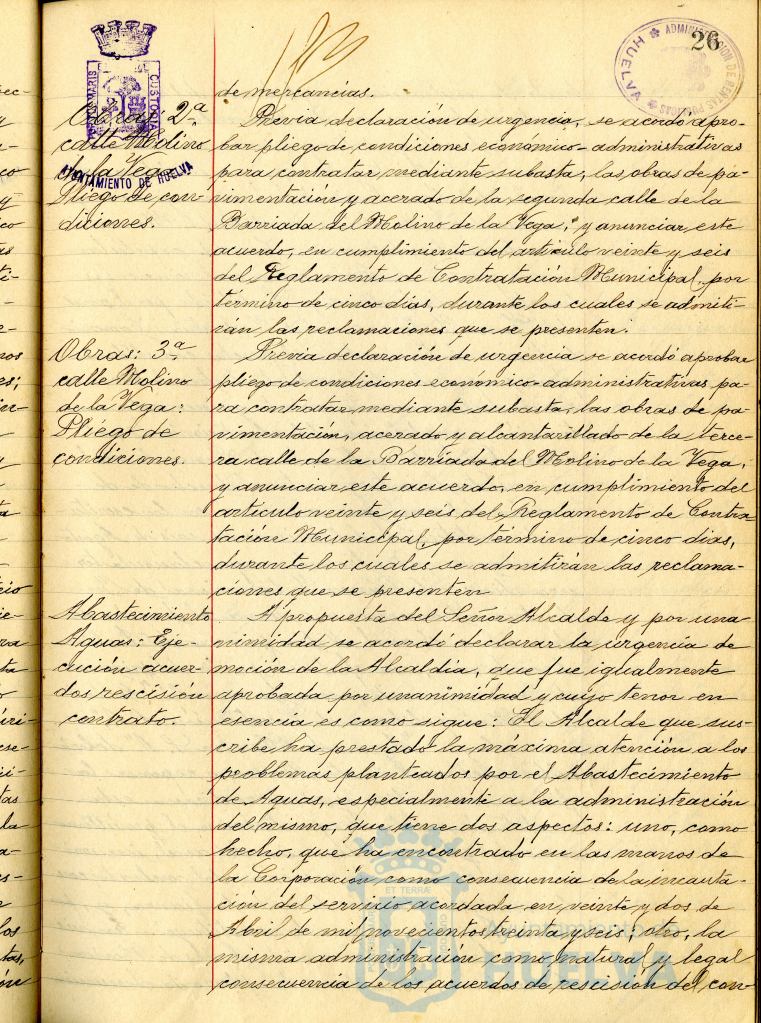 26
ADMINISTRACION DE RENTAS PUBLICAS
HUELVA
PORTUS MARIS ET TERRAE CUSTODIA
AYUNTAMIENTO DE HUELVA
de mercancias.
Obras: 2ª
calle Molino
de la Vega:
Pliego de con-
diciones.
Previa declaración de urgencia, se acordó apro-
bar pliego de condiciones económico-administrativas
para contratar mediante subasta, las obras de pa-
vimentación y acerado de la segunda calle de la
Barriada del Molino de la Vega; y anunciar este
acuerdo, en cumplimiento del artículo veinte y seis
del Reglamento de Contratación Municipal, por
término de cinco dias, durante los cuales se admiti-
rán las reclamaciones que se presenten.
Obras: 3ª
calle Molino
de la Vega:
Pliego de
condiciones.
Previa declaración de urgencia se acordó aprobar
pliego de condiciones económico-administrativas pa-
ra contratar, mediante subasta, las obras de pa-
vimentación, acerado y alcantarillado de la terce-
ra calle de la Barriada del Molino de la Vega,
y anunciar este acuerdo, en cumplimiento del
artículo veinte y seis del Reglamento de Contra-
tación Municipal, por término de cinco dias,
durante los cuales se admitirán las reclama-
ciones que se presenten
Abastecimiento
Aguas: Eje-
cución acuer-
dos rescisión
contrato.
A propuesta del Señor Alcalde y por una-
nimidad se acordó declarar la urgencia de
moción de la Alcaldia, que fue igualmente
aprobada por unanimidad y cuyo tenor en
esencia es como sigue: El Alcalde que sus-
cribe ha prestado la máxima atención a los
problemas planteados por el Abastecimiento
de Aguas, especialmente a la administración
del mismo, que tiene dos aspectos: uno, como
hecho, que ha encontrado en las manos de
la Corporación como consecuencia de la incauta-
ción del servicio acordada en veinte y dos de
Abril de mil novecientos treinta y seis; otro, la
misma administración como natural y legal
consecuencia de los acuerdos de rescisión del con-
Ayuntamiento de
HUELVA